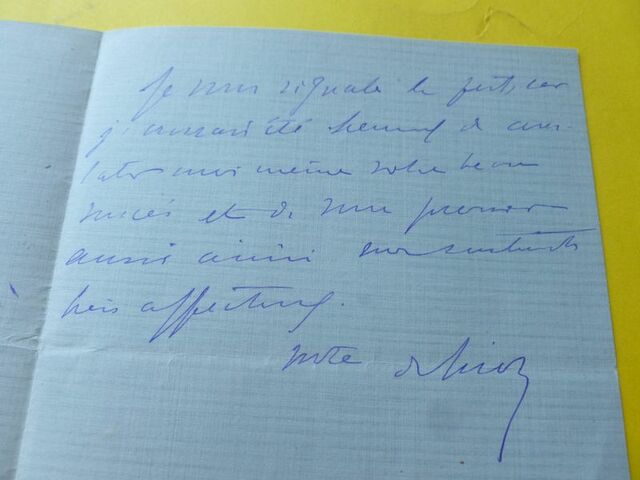 Je vous signale le fait, car
j'aurais été heureux de cons-
tater moi même votre beau
succès et de vous prouver
aussi ainsi mes sentiments
très affectueux.
votre